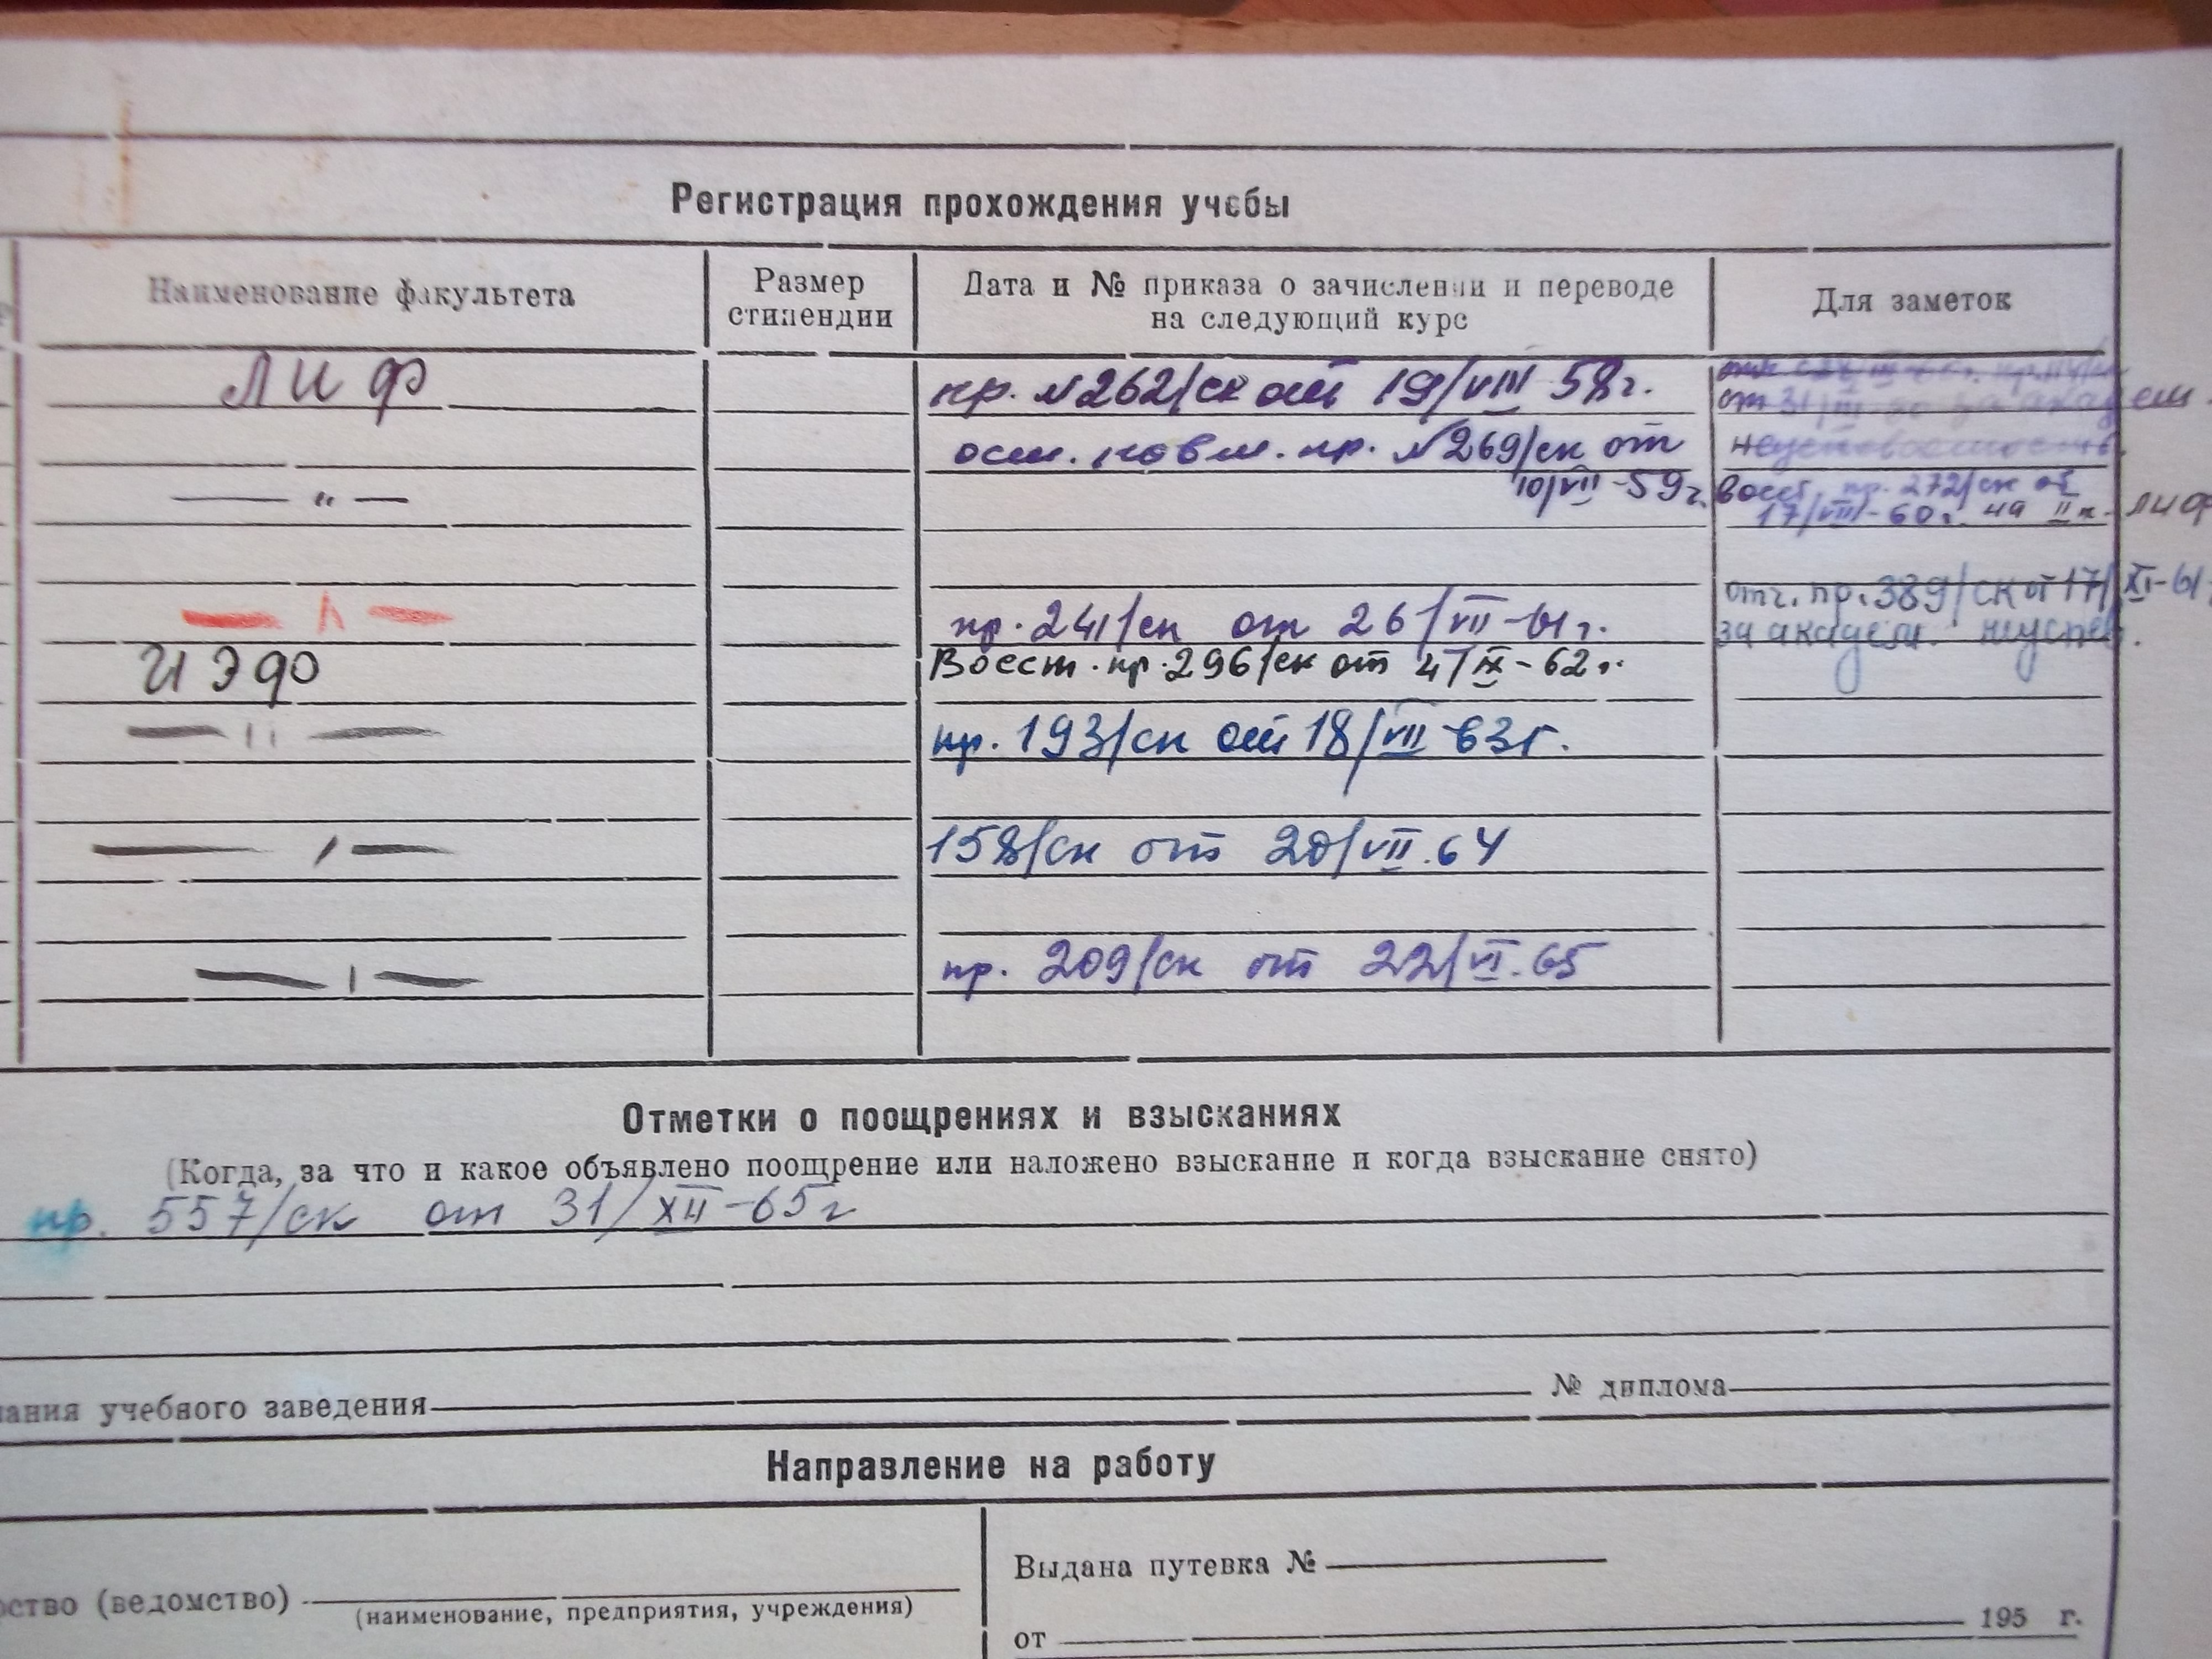 Регистрация прохождения учебы
Наименование факультета
Размер стипендии
Дата и № приказа о зачислении и переводе
на следующий курс
Для заметок
ЛИФ
пр. №262/ск от 19/VIII 58г.
от 31/III-60 за академ.
неуспеваемость
ост. повт. пр. №269/ск от
10/VII-59г.
— " —
восст. пр. 272/ск от
17/VIII-60г. на II к. ЛИФ
отч. пр. 389/ск от 17/XI-61
за академ. неуспев.
— " —
пр. 241/ск от 26/VII-61г.
ИЭФ
Восст. пр. 296/ск от 4/IX-62г.
— " —
пр. 193/ск от 18/VII-63г.
— " —
158/ск от 20/VII.64
— " —
пр. 209/ск от 22/VI.65
Отметки о поощрениях и взысканиях
(Когда, за что и какое объявлено поощрение или наложено взыскание и когда взыскание снято)
пр. 557/ск от 31/XII-65г
ания учебного заведения
№ диплома
Направление на работу
рство (ведомство)
(наименование, предприятия, учреждения)
Выдана путевка №
от 195 г.